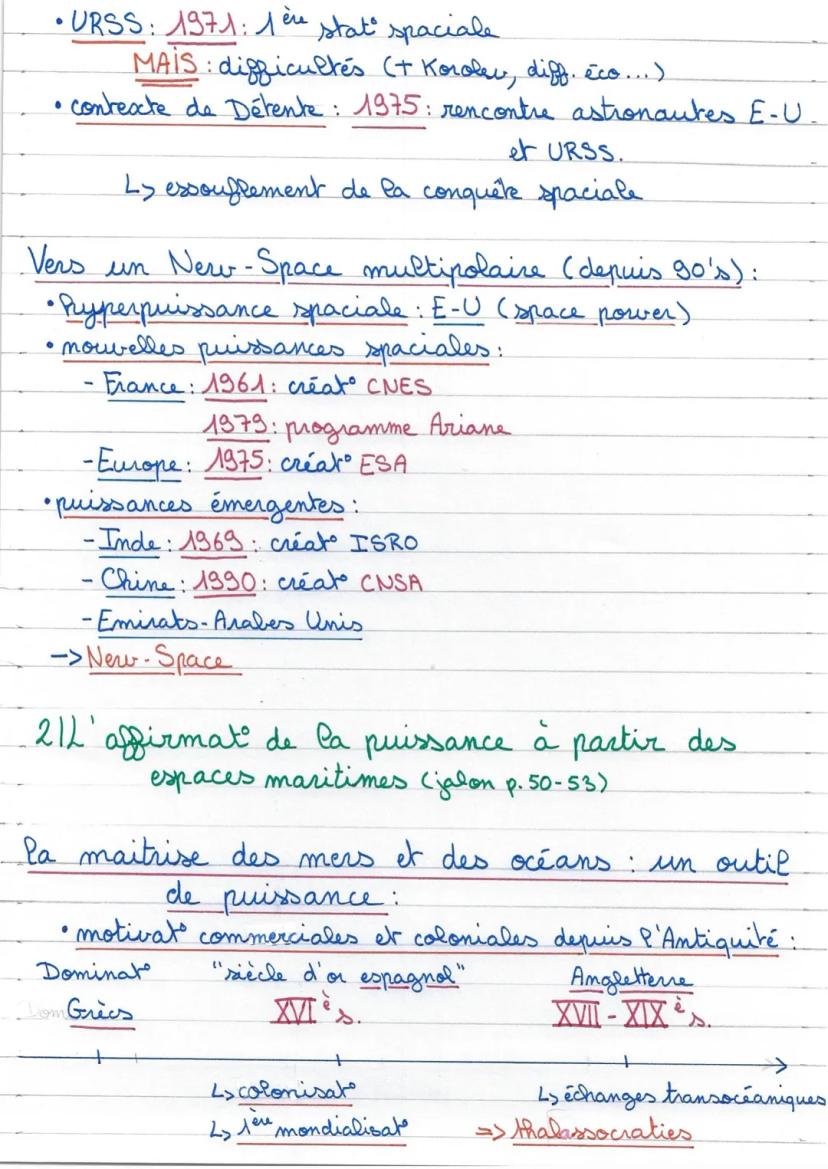 • URSS : 1971 : 1ère stat° spaciale
MAIS : difficultés (+ Korolev, diff. éco...)
• contexte de Détente : 1975 : rencontre astronautes E-U
et URSS.
↳ essouflement de la conquête spaciale
Vers un New-Space multipolaire (depuis 90's) :
• hyperpuissance spaciale : E-U (space power)
• nouvelles puissances spaciales :
- France : 1961 : créat° CNES
1979 : programme Ariane
- Europe : 1975 : créat° ESA
• puissances émergentes :
- Inde : 1969 : créat° ISRO
- Chine : 1990 : créat° CNSA
- Emirats-Arabes Unis
-> New-Space
2) L'affirmat° de la puissance à partir des
espaces maritimes (jalon p. 50-53)
La maitrise des mers et des océans : un outil
de puissance :
• motivat° commerciales et coloniales depuis l'Antiquité :
Dominat° "siècle d'or espagnol" Angletterre
Grècs XVIè s. XVII - XIXè s.
↳ colonisat° ↳ échanges transocéaniques
↳ 1ère mondialisat° => thalassocraties